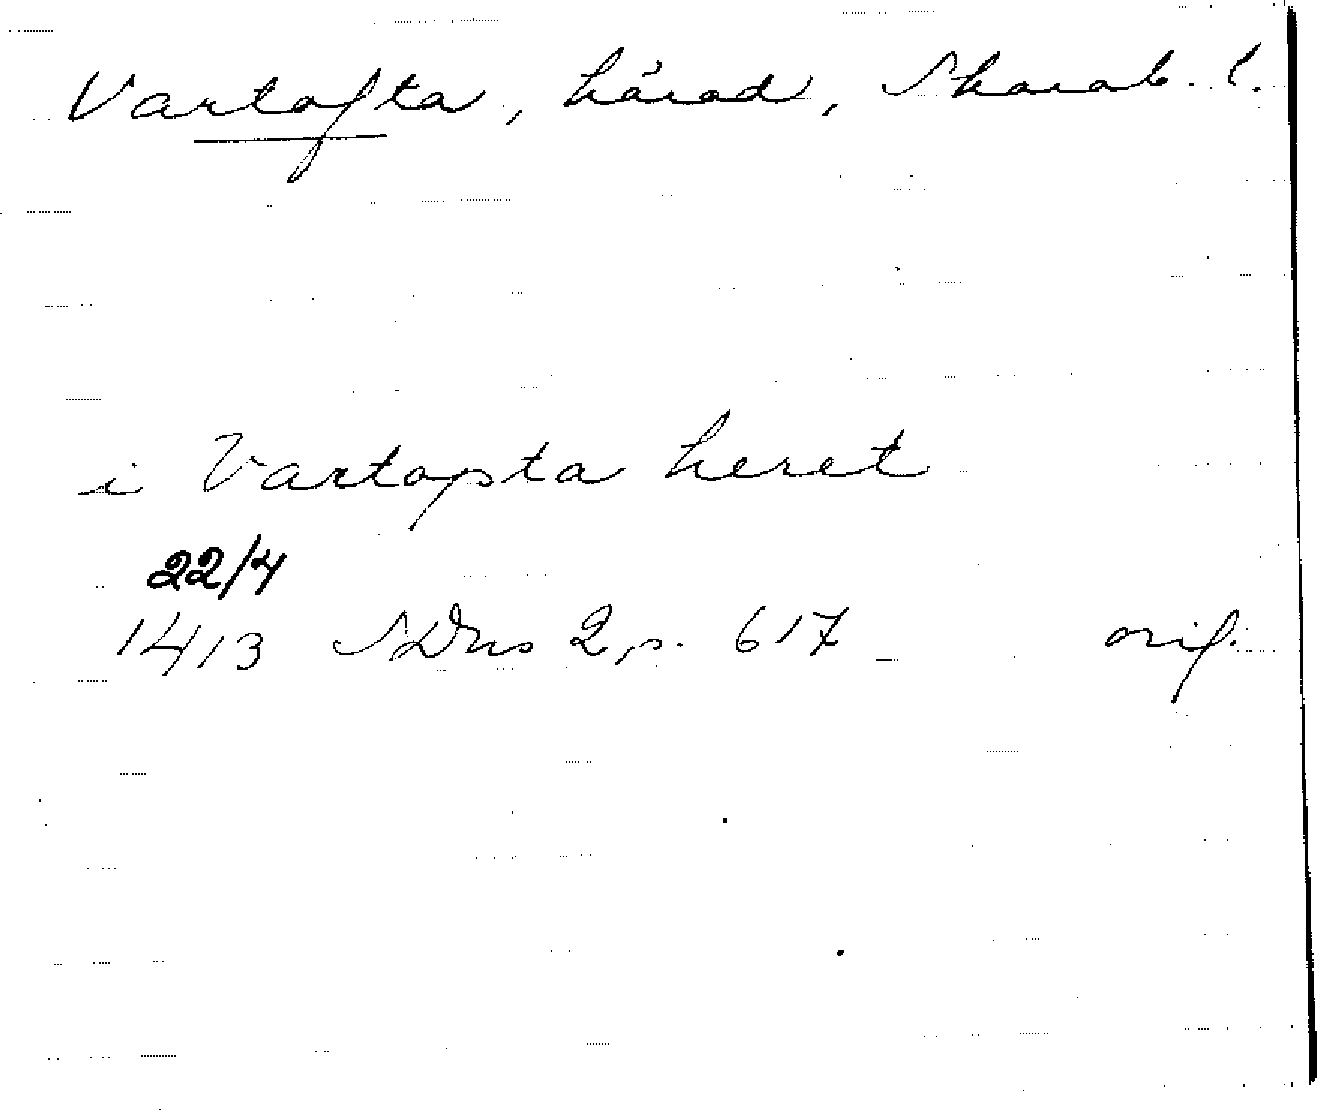 Vartofta, härad, Skarab. l.
i Vartopta heret
22/4
1413 SDns 2, s. 617 orig.